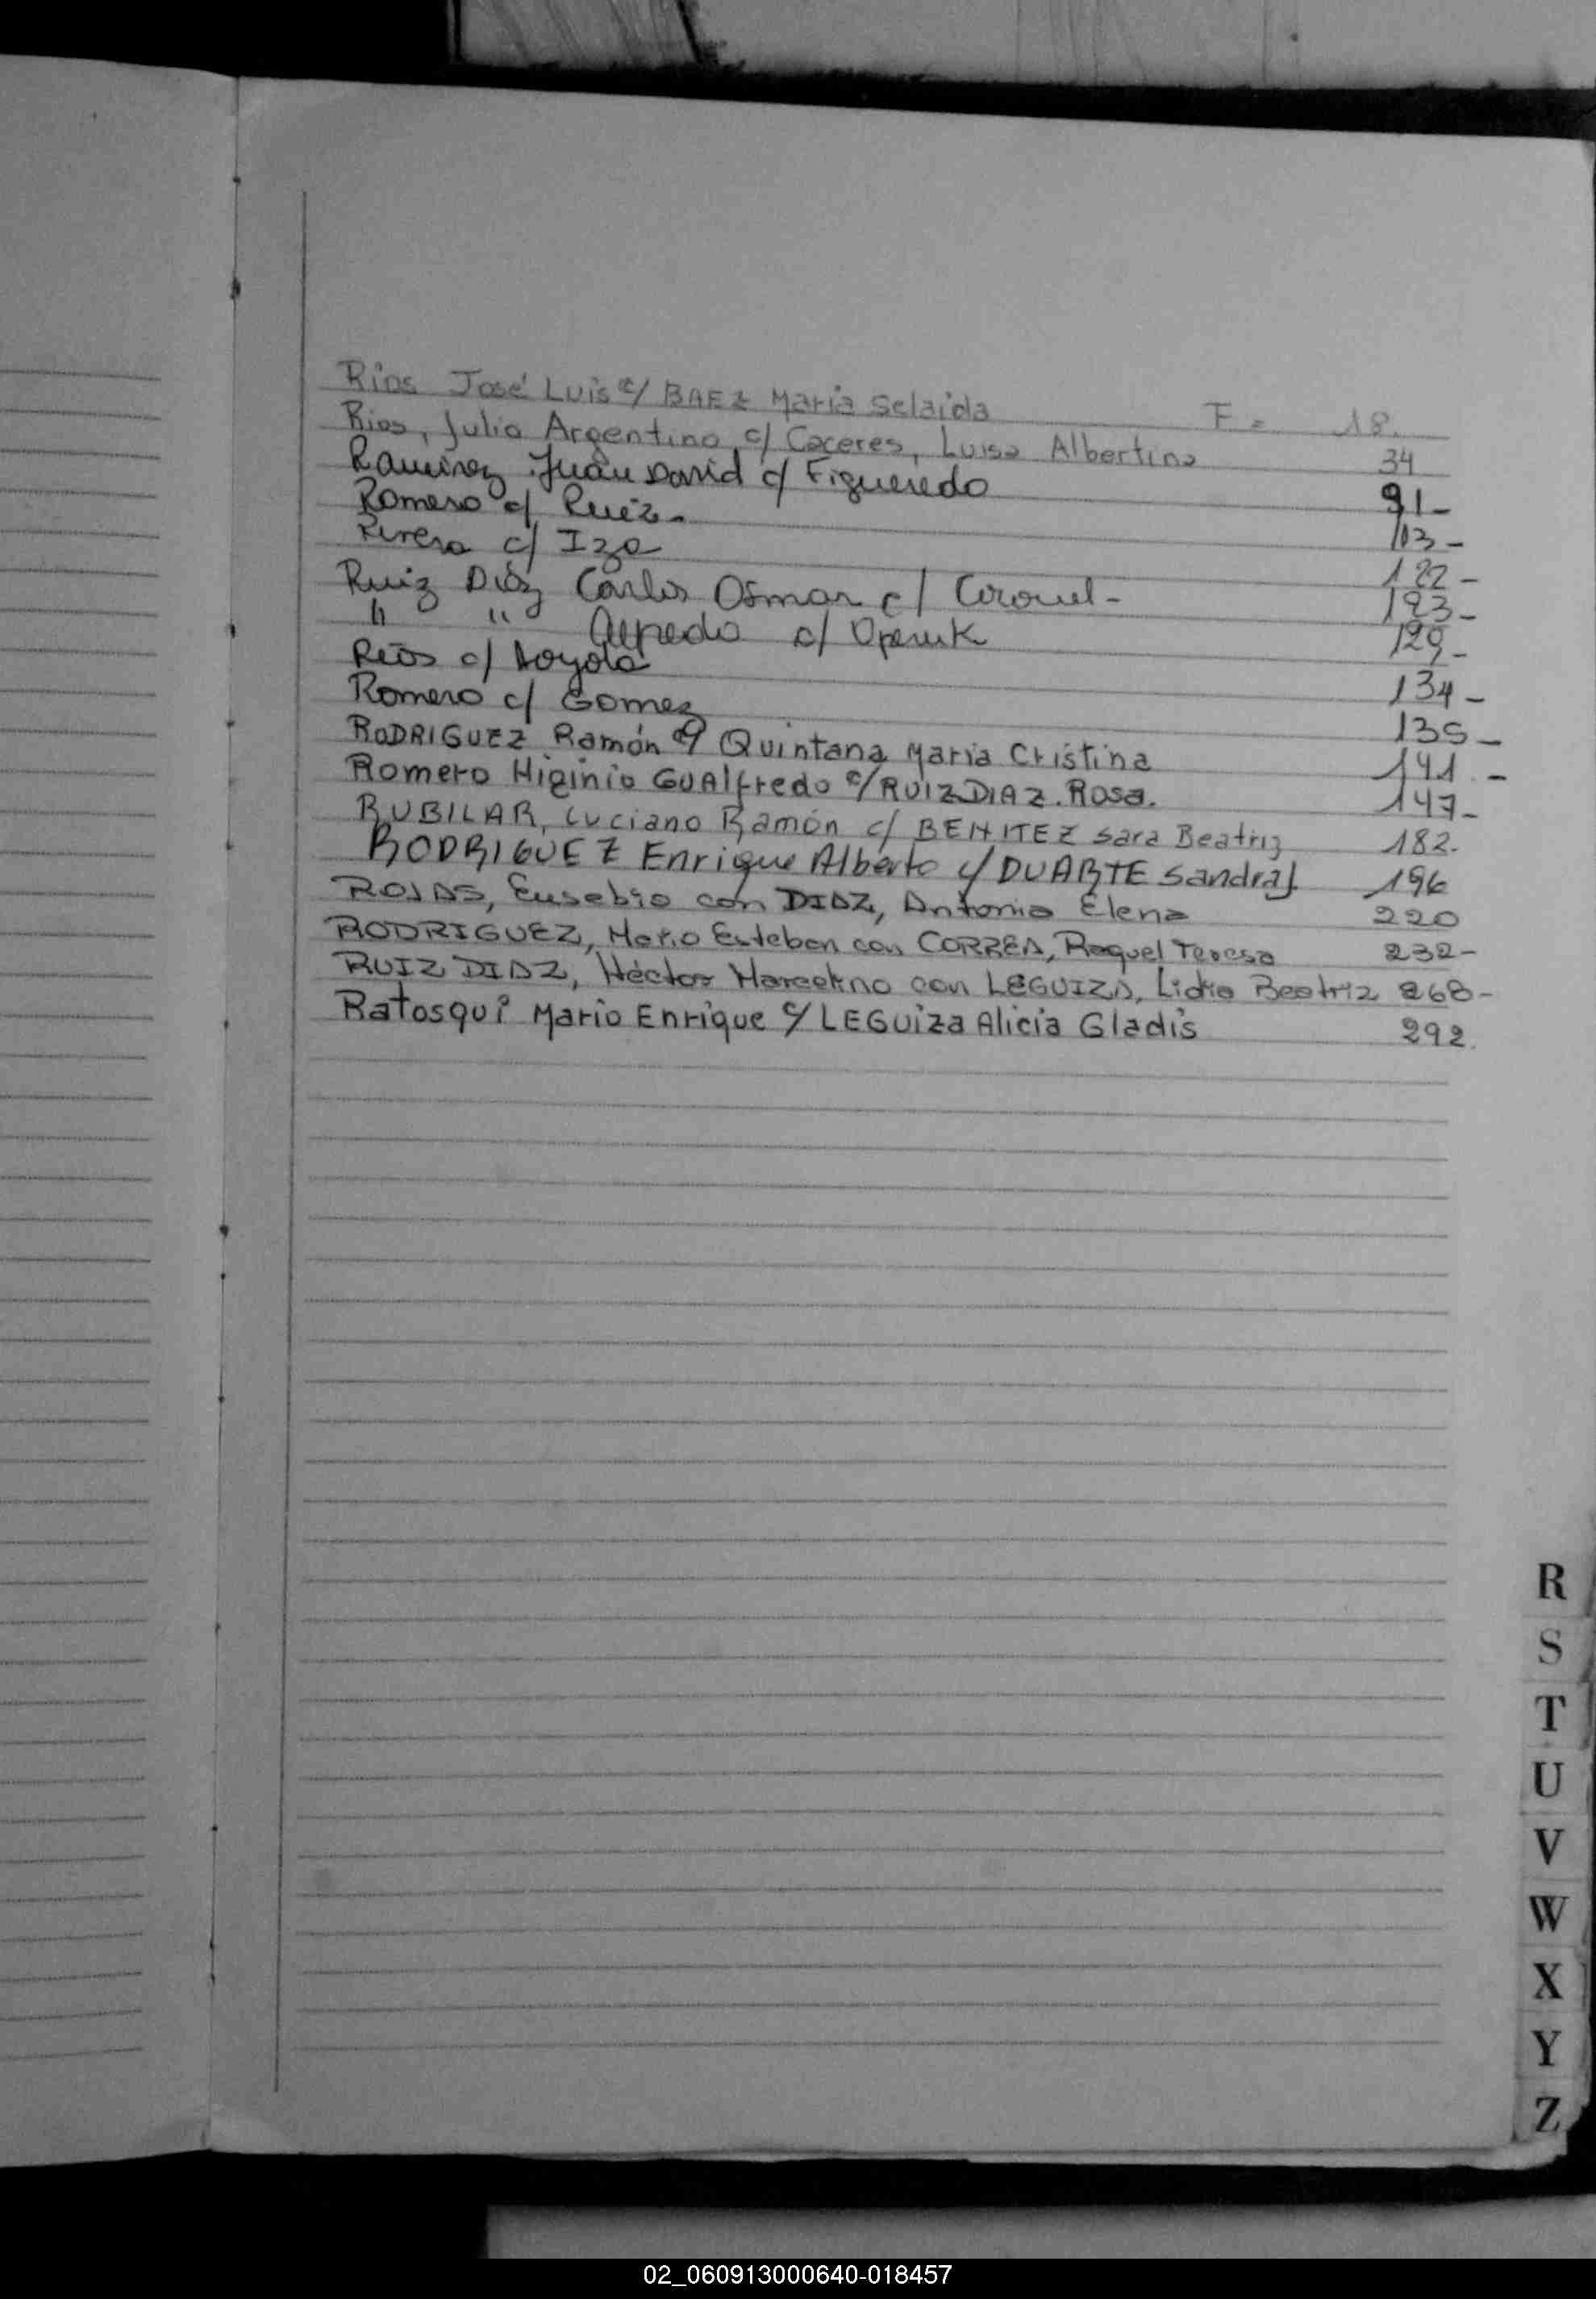 Rios José Luis c/ BAEZ Maria Selaida F= 18.
Rios, Julio Argentino c/ Caceres, Luisa Albertina 34
Ramirez Juan David c/ Figueredo 91-
Romero c/ Ruiz- 113-
Rivero c/ Iza 122-
Ruiz Diáz Carlos Osmar c/ Coronel- 123-
" " Alfredo c/ Operuk 129-
Rios c/ Loyola 134-
Romero c/ Gomez 135-
RODRIGUEZ Ramón c/ Quintana Maria Cristina 141.-
Romero Higinio GUAlfredo c/ RUIZ DIAZ. Rosa. 147-
RUBILAR, Luciano Ramón c/ BENITEZ Sara Beatriz 182.
RODRIGUEZ Enrique Alberto c/ DUARTE Sandra J. 196
ROJAS, Eusebio con DIAZ, Antonia Elena 220
RODRIGUEZ, Mario Esteban con CORREA, Raquel Teresa 232-
RUIZ DIAZ, Héctor Marcelino con LEGUIZA, Lidia Beatriz 268-
Ratosqui Mario Enrique c/ LEGUIZA Alicia Gladis 292.
R
S
T
U
V
W
X
Y
Z
02_060913000640-018457